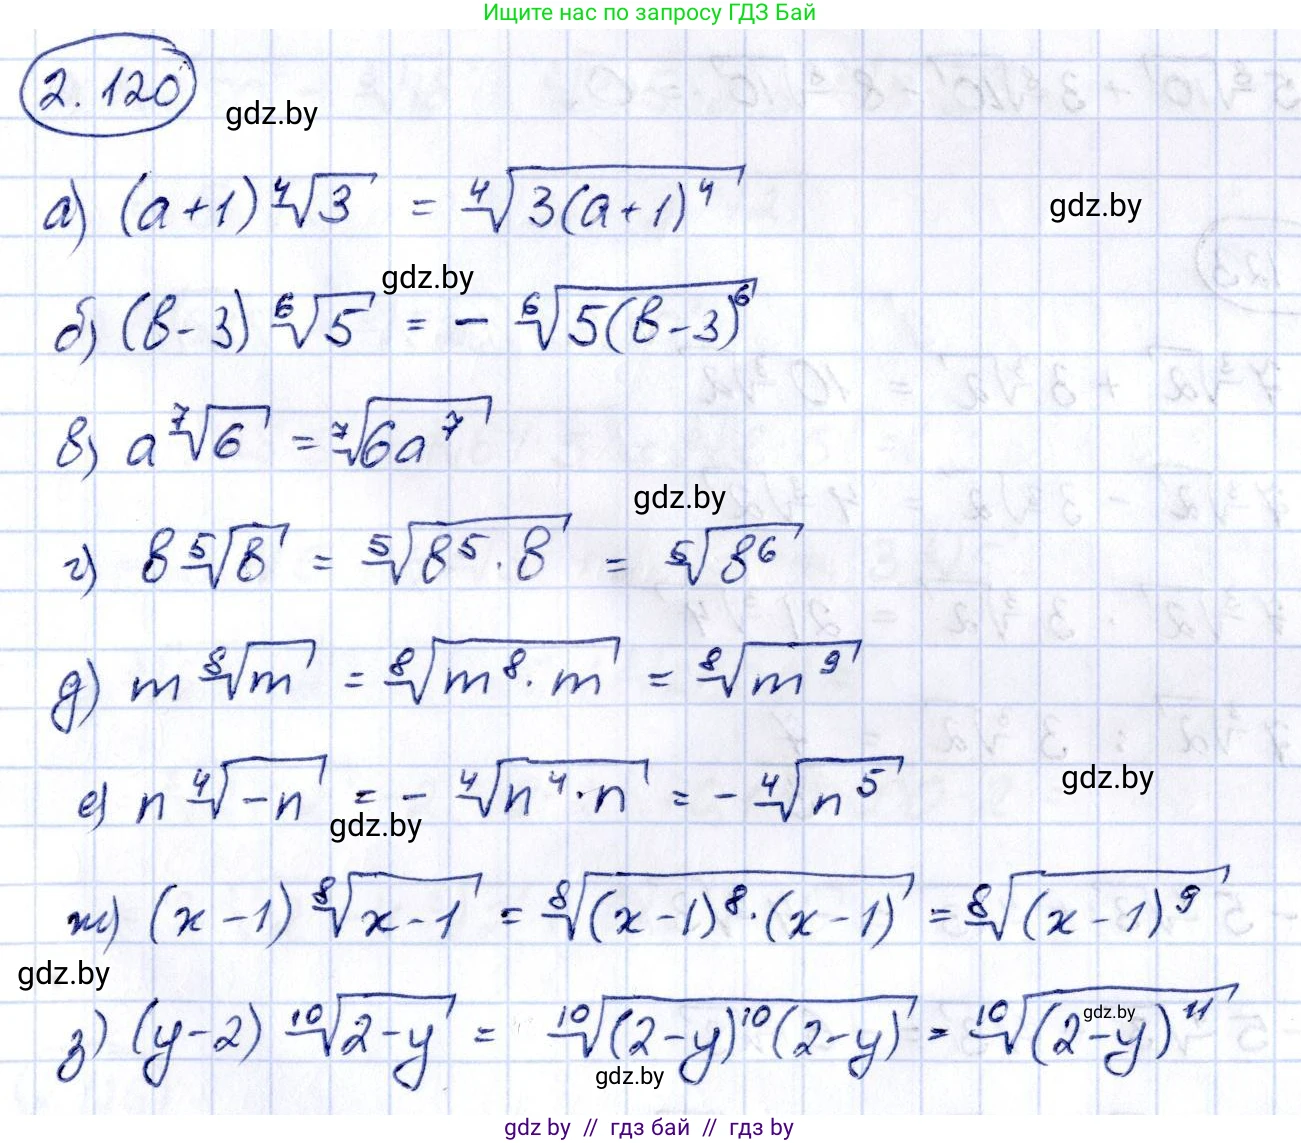 Ищите нас по запросу ГДЗ Бай
2.120
gdz.by
а) (a+1) ∜3 = ∜(3(a+1)⁴)
gdz.by
gdz.by
б) (b-3) ⁶√5 = - ⁶√(5(b-3)⁶)
в) a ⁷√6 = ⁷√(6a⁷)
gdz.by
г) b ⁵√b = ⁵√(b⁵·b) = ⁵√(b⁶)
д) m ⁸√m = ⁸√(m⁸·m) = ⁸√(m⁹)
gdz.by
е) n ∜(-n) = - ∜(n⁴·n) = - ∜(n⁵)
gdz.by
ж) (x-1) ⁸√(x-1) = ⁸√((x-1)⁸·(x-1)) = ⁸√((x-1)⁹)
gdz.by
з) (y-2) ¹⁰√(2-y) = ¹⁰√((2-y)¹⁰(2-y)) = ¹⁰√((2-y)¹¹)
gdz.by
gdz.by
gdz by // гдз бай // гдз by